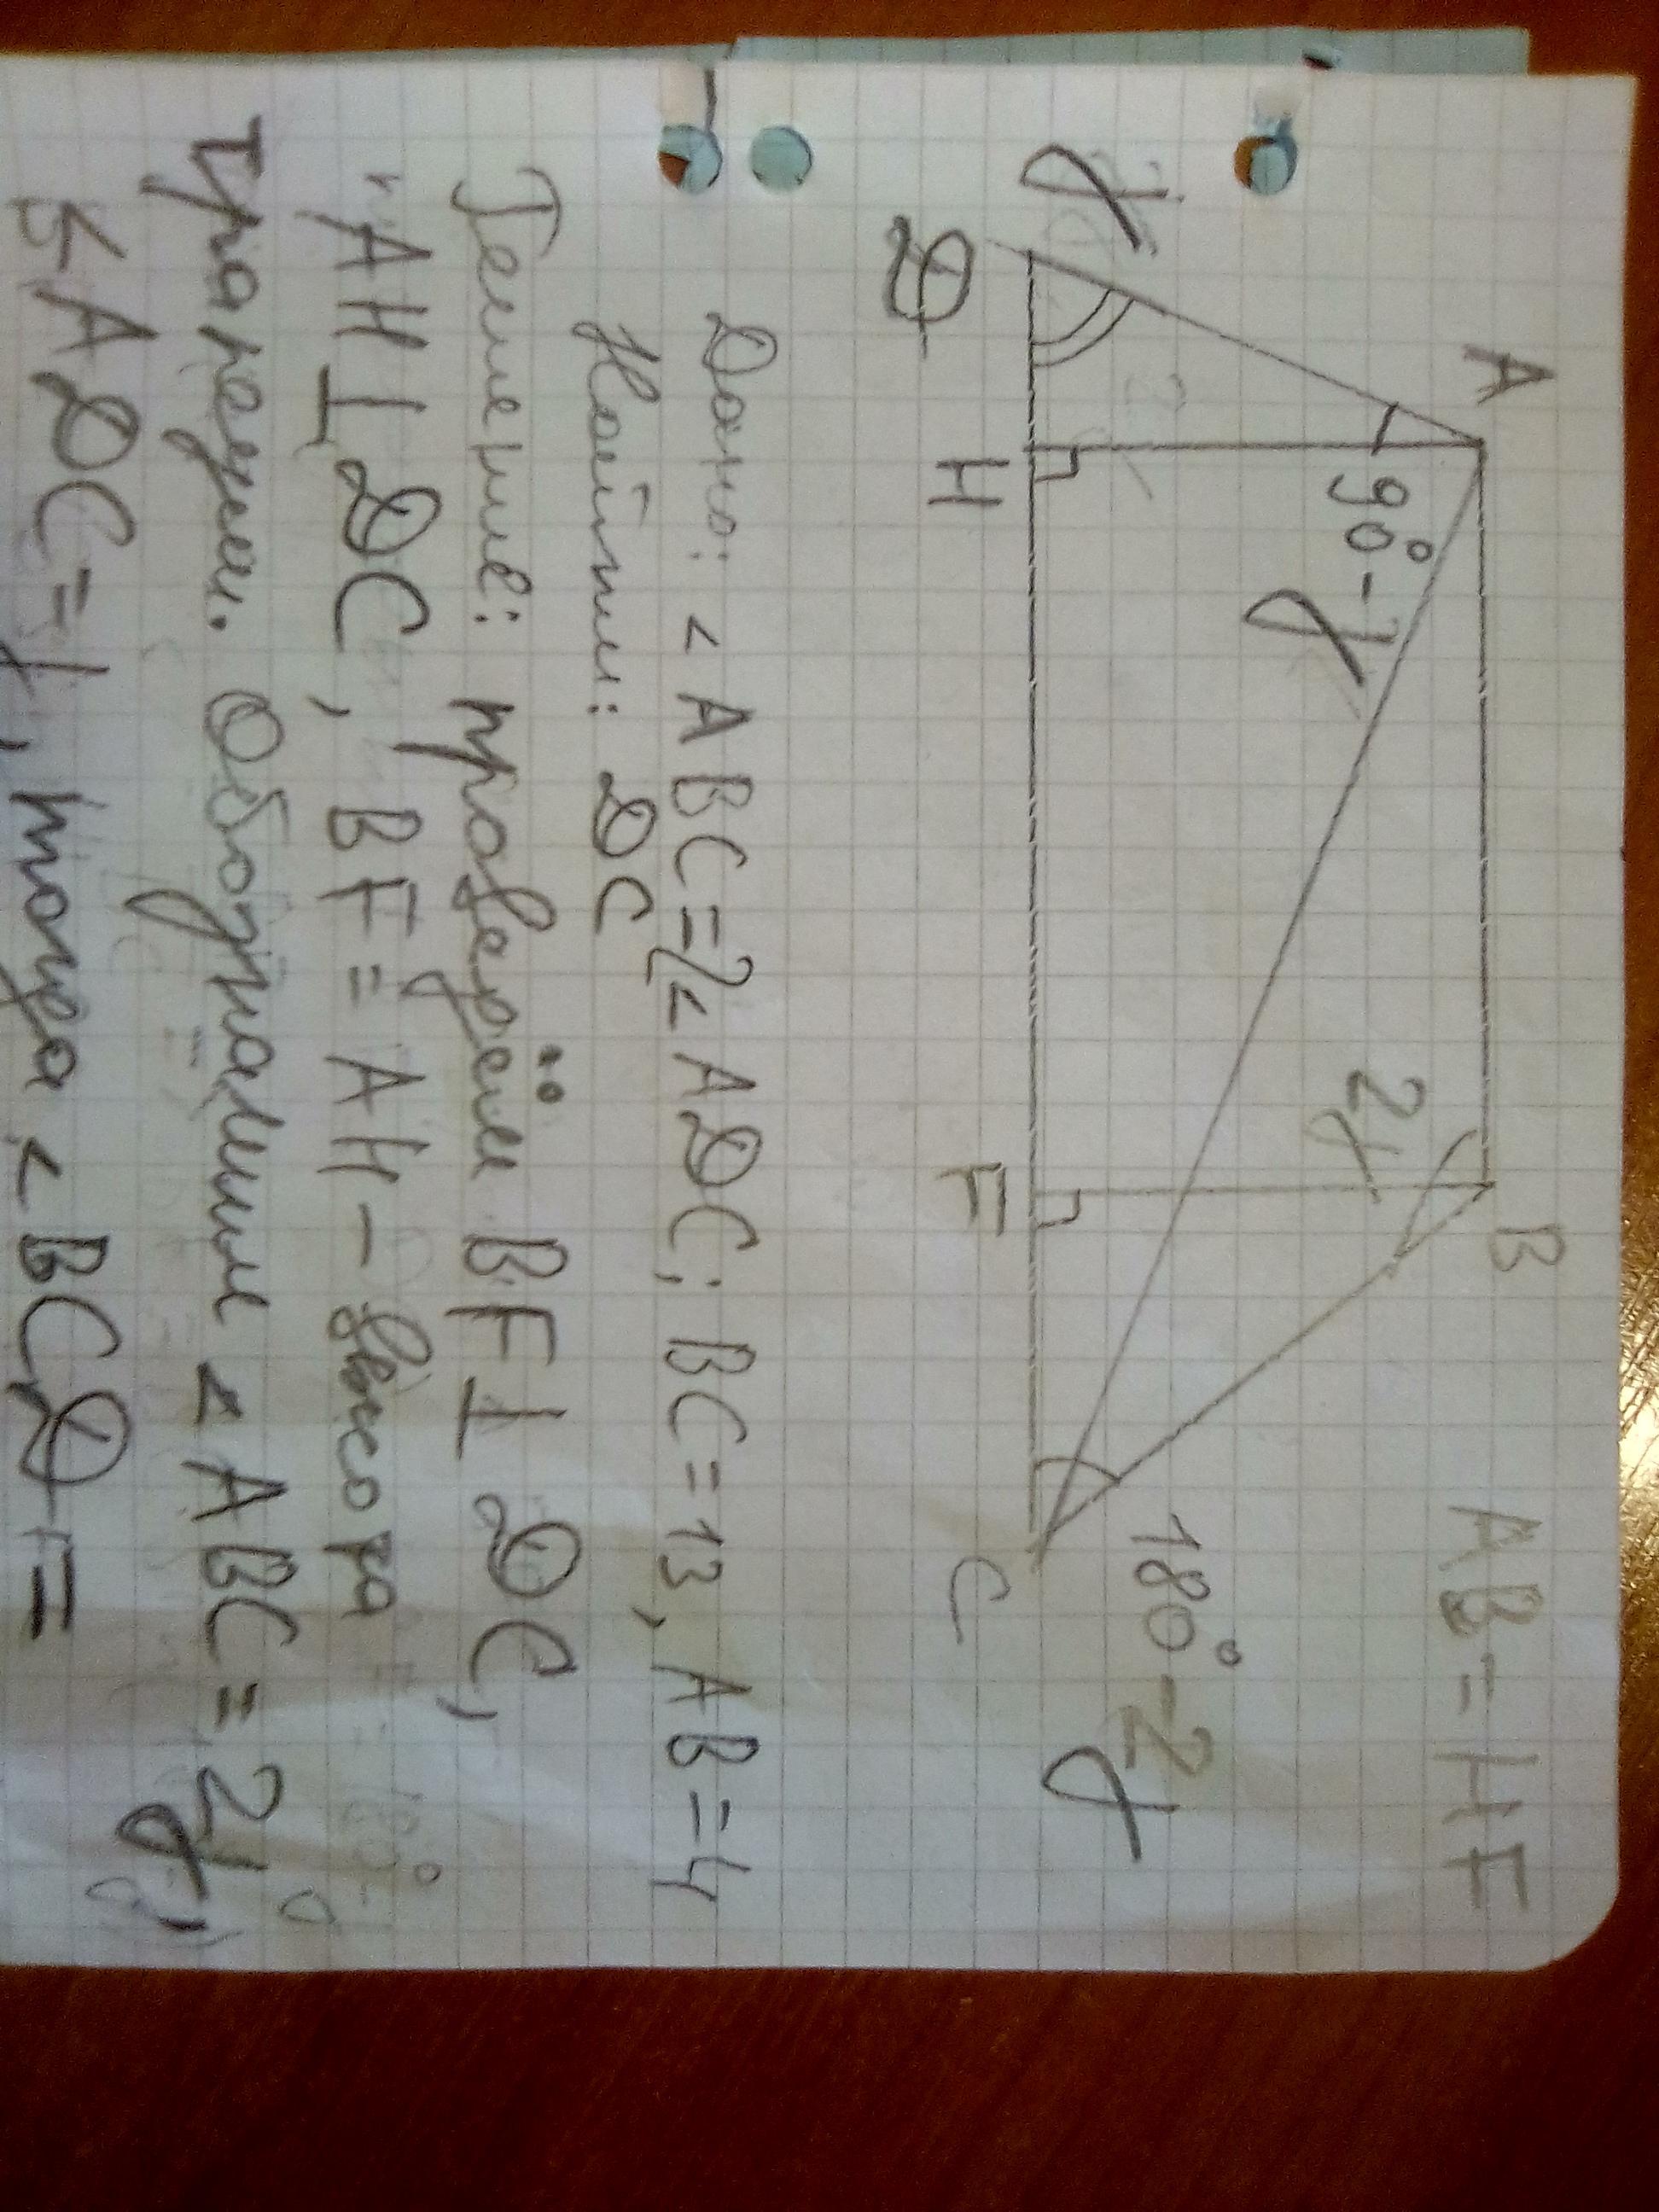 AB=HF
A B
90°-γ 2γ
γ 180°-2γ
D H F C
Дано: <ABC=2<ADC; BC=13, AB=4
Найти: DC
Решение: проведём BF⊥DC,
AH⊥DC, BF=AH - высота
трапеции. Обозначим <ABC=2γ,
<ADC=γ, тогда <BCD=